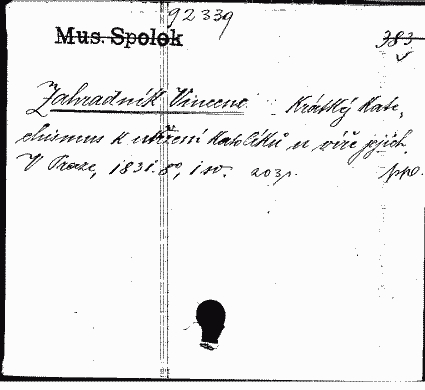 92339
Mus. Spolok
383
Zahradník Vincenc Krátký Kate-
chismus k utvrzení Katolíků u víře jejich.
V Praze, 1831. 8°, 1 sv. 203 s. ppo.